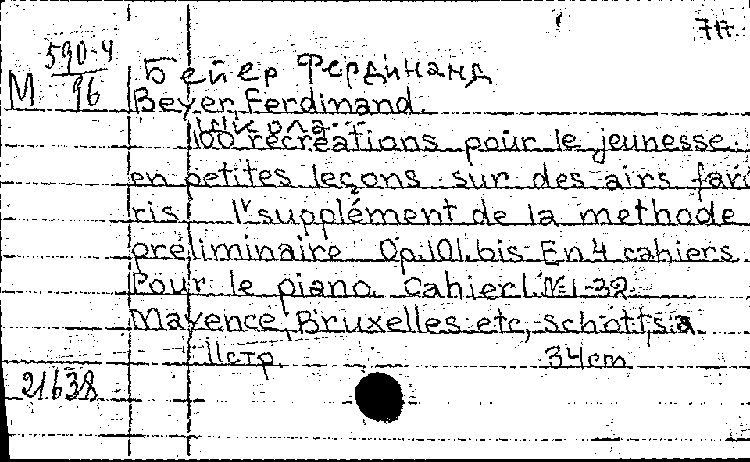 717
М 590-4
96
Бейер Фердинанд
Beyer, Ferdinand.
Школа...
100 récréations pour le jeunesse.
en petites leçons sur des airs favo
ris. l'supplément de la methode
préliminaire Op.101.bis En 4 cahiers.
Pour le piano. Cahier 1. № 1-32
Mayence, Bruxelles etc, Schott, s.a.
11 стр. 34 cm
21638